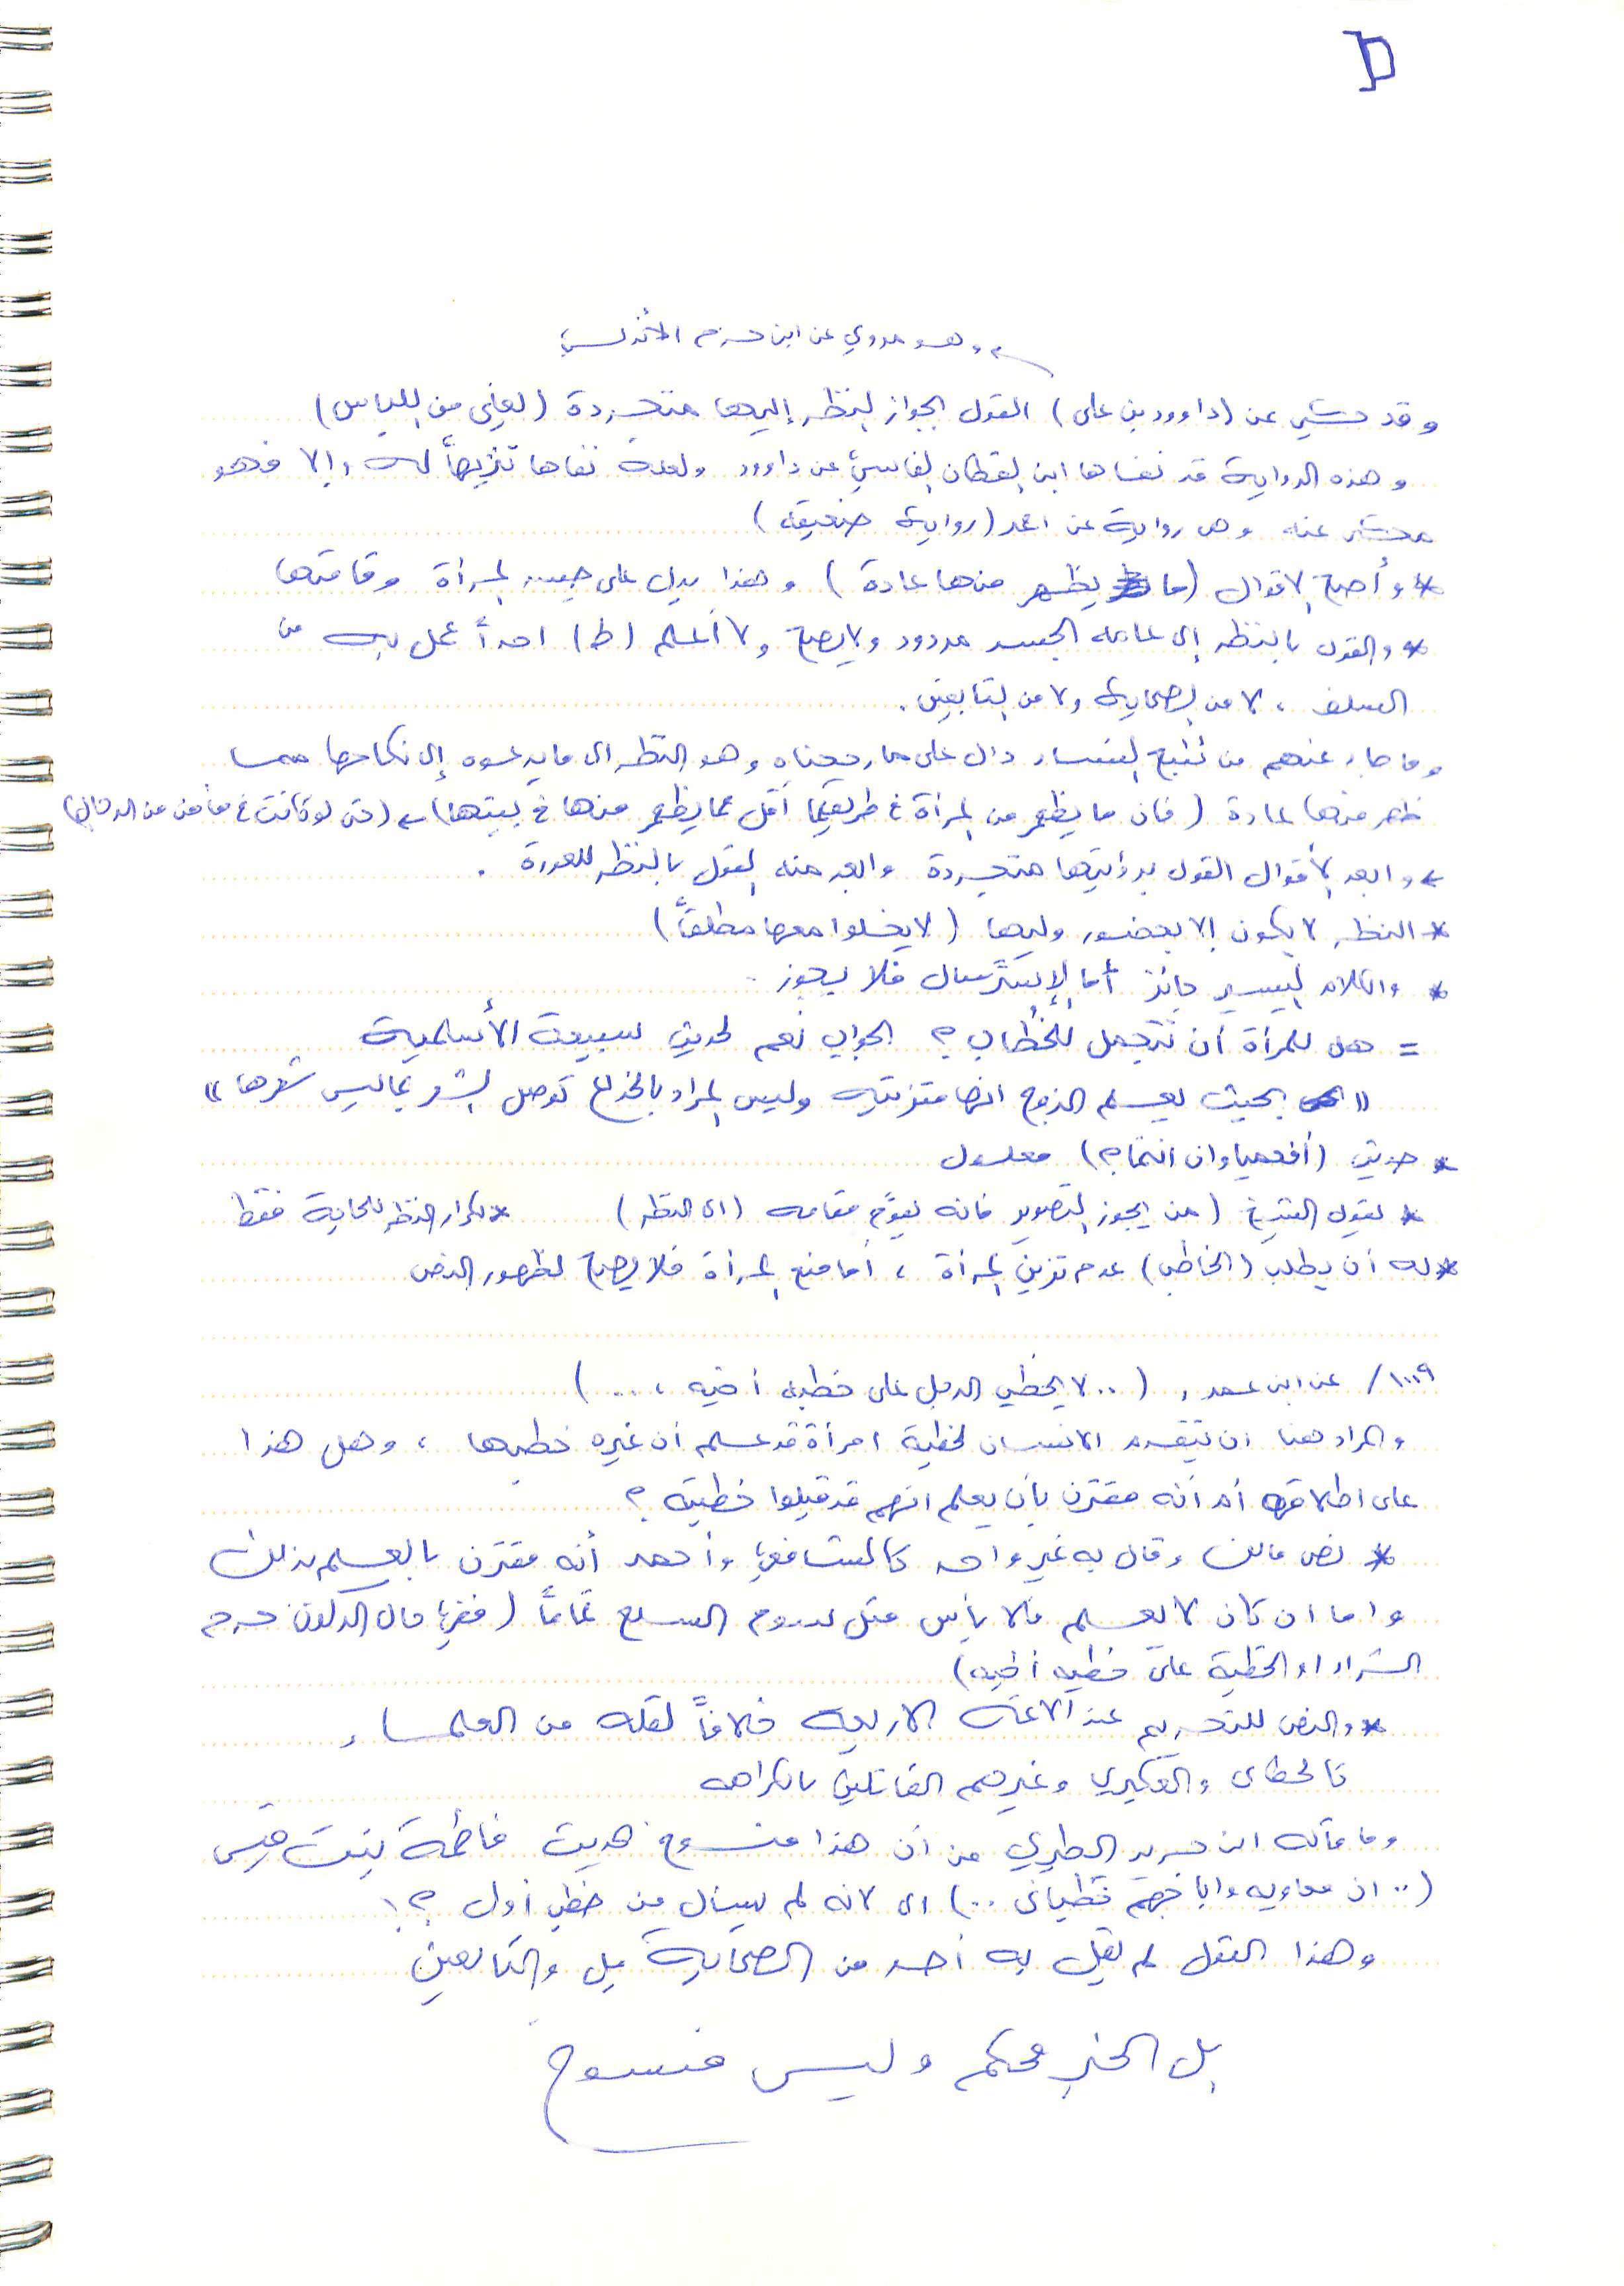 وهو مروي عن ابن حزم الأندلسي
وقد حكي عن (داوود بن علي) القول بجواز النظر إليها متجردة (يعني من اللباس)
وهذه الرواية قد نفاها ابن القطان الفاسي عن داوود ولعله نفاها تنزيهاً له وإلا فهو
محكي عنه وهي رواية عن احمد (رواية ضعيفة)
* وأصح الاقوال (ما يظهر منها عادة) وهذا يدل على جسد المرأة وقامتها
* والقول بالنظر إلى عامة الجسد مردود ولا يصح ولا أعلم (ط) احداً عمل به من
السلف، لا من الصحابة ولا من التابعين.
وما جاء عنهم من تتبع النساء دال على ما رجحناه وهو النظر الى ما يدعوه إلى نكاحها مما
ظهر منها عادة (فان ما يظهر من المرأة في طريقها أقل مما يظهر منها في بيتها) ← (حتى لو كانت في مأمن من الرجال)
← وابعد الأقوال القول برؤيتها متجردة وابعد منه القول بالنظر للعورة.
* النظر لا يكون إلا بحضور وليها (لا يخلوا معها مطلقاً)
* والكلام اليسير جائز أما الإسترسال فلا يجوز.
= هل للمرأة أن تتجمل للخُطّاب؟ الجواب نعم لحديث سبيعة الأسلمية
"بحيث يعلم الزوج انها متزينة وليس المراد بالخداع كوصل الشعر بما ليس شعرها"
* حديث (أفعمياوان انتما؟) معلول
* يقول الشيخ (من يجوز التصوير فانه يقوم مقامه (اى النظر) * تكرار النظر للحاجة فقط
* له أن يطلب (الخاطب) عدم تزين المرأة، أما منع المرأة فلا يصح لظهور النص
١٠٠٩/ عن ابن عمر، (.. لا يخطب الرجل على خطبة أخيه، ..)
والمراد هنا ان يتقدم الانسان لخطبة امرأة قد علم أن غيره خطبها، وهل هذا
على اطلاقه أم أنه مقترن بأن يعلم انهم قد قبلوا خطبته؟
* نص مالك وقال به غير واحد كالشافعي وأحمد أنه مقترن بالعلم بذلك
واما ان كان لا يعلم فلا بأس مثل سوم السلع تماماً (ففي حال الركون حرم
الشراء او الخطبة على خطبة أخيه)
* والنص للتحريم عند الائمة الاربعة خلافاً لقلة من العلماء
كالخطابي والعكبري وغيرهم القائلين بالكراهه
وما قاله ابن جرير الطبري من أن هذا منسوخ بحديث فاطمة بنت قيس
(.. ان معاويه وابا جهم خطباني ..) اى لانه لم يسأل من خطب أول؟!
وهذا القول لم يقل به أحد من الصحابة بل والتابعين
بل الخبر محكم وليس منسوخ